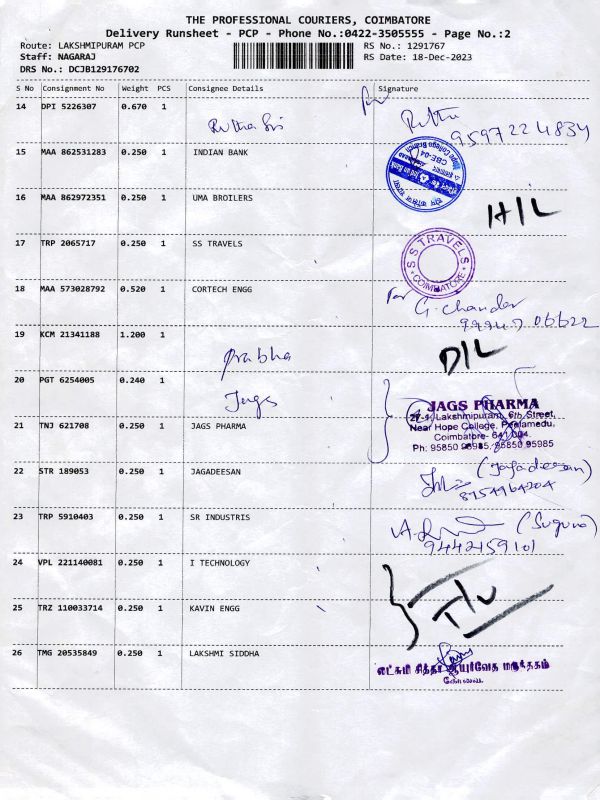 THE PROFESSIONAL COURIERS, COIMBATORE
Delivery Runsheet - PCP - Phone No.:0422-3505555 - Page No.:2
Route: LAKSHMIPURAM PCP RS No.: 1291767
Staff: NAGARAJ RS Date: 18-Dec-2023
DRS No.: DCJB129176702
S No Consignment No Weight PCS Consignee Details Signature
14 DPI 5226307 0.670 1
9597224834
15 MAA 862531283 0.250 1 INDIAN BANK
16 MAA 862972351 0.250 1 UMA BROILERS
H/L
17 TRP 2065717 0.250 1 SS TRAVELS
S S TRAVELS
COIMBATORE
18 MAA 573028792 0.520 1 CORTECH ENGG
for G. Chander
19 KCM 21341188 1.200 1
Prabha D/L
20 PGT 6254005 0.240 1
Jags
JAGS PHARMA
Lakshmipuram, 6th Street,
Near Hope College, Peelamedu,
Coimbatore- 641 004.
21 TNJ 621708 0.250 1 JAGS PHARMA
22 STR 189053 0.250 1 JAGADEESAN
(Jagadeesan)
23 TRP 5910403 0.250 1 SR INDUSTRIS
(Suguna)
9442459101
24 VPL 221140081 0.250 1 I TECHNOLOGY
25 TRZ 110033714 0.250 1 KAVIN ENGG
26 TMG 20535849 0.250 1 LAKSHMI SIDDHA
லட்சுமி சித்தா ஆயுர்வேத மருந்தகம்
கோவை.